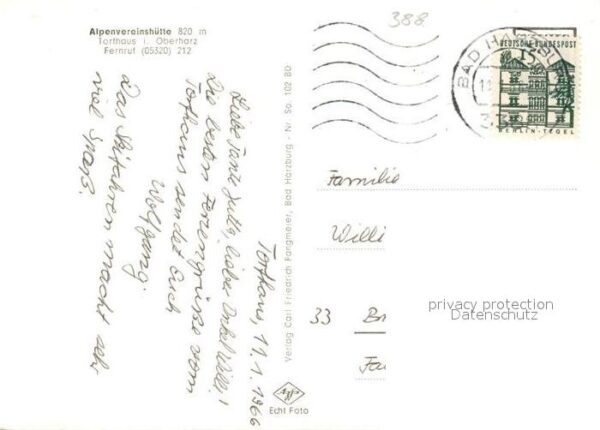 Alpenvereinshütte 820 m
Torfhaus i. Oberharz
Fernruf (05320) 212
Torfhaus, 11.1.1966
Liebe Tante Jutta, lieber Onkel Willi!
Die besten Feriengrüße vom
Torfhaus sendet Euch
Wolfgang.
Das Skifahren macht sehr
viel Spaß.
Verlag Carl Friedrich Fangmeier, Bad Harzburg - Nr. So. 102 Bo
Echt Foto
388
BAD HARZBURG
DEUTSCHE BUNDESPOST
15
BERLIN-TEGEL
Familie
Willi
33
privacy protection
Datenschutz